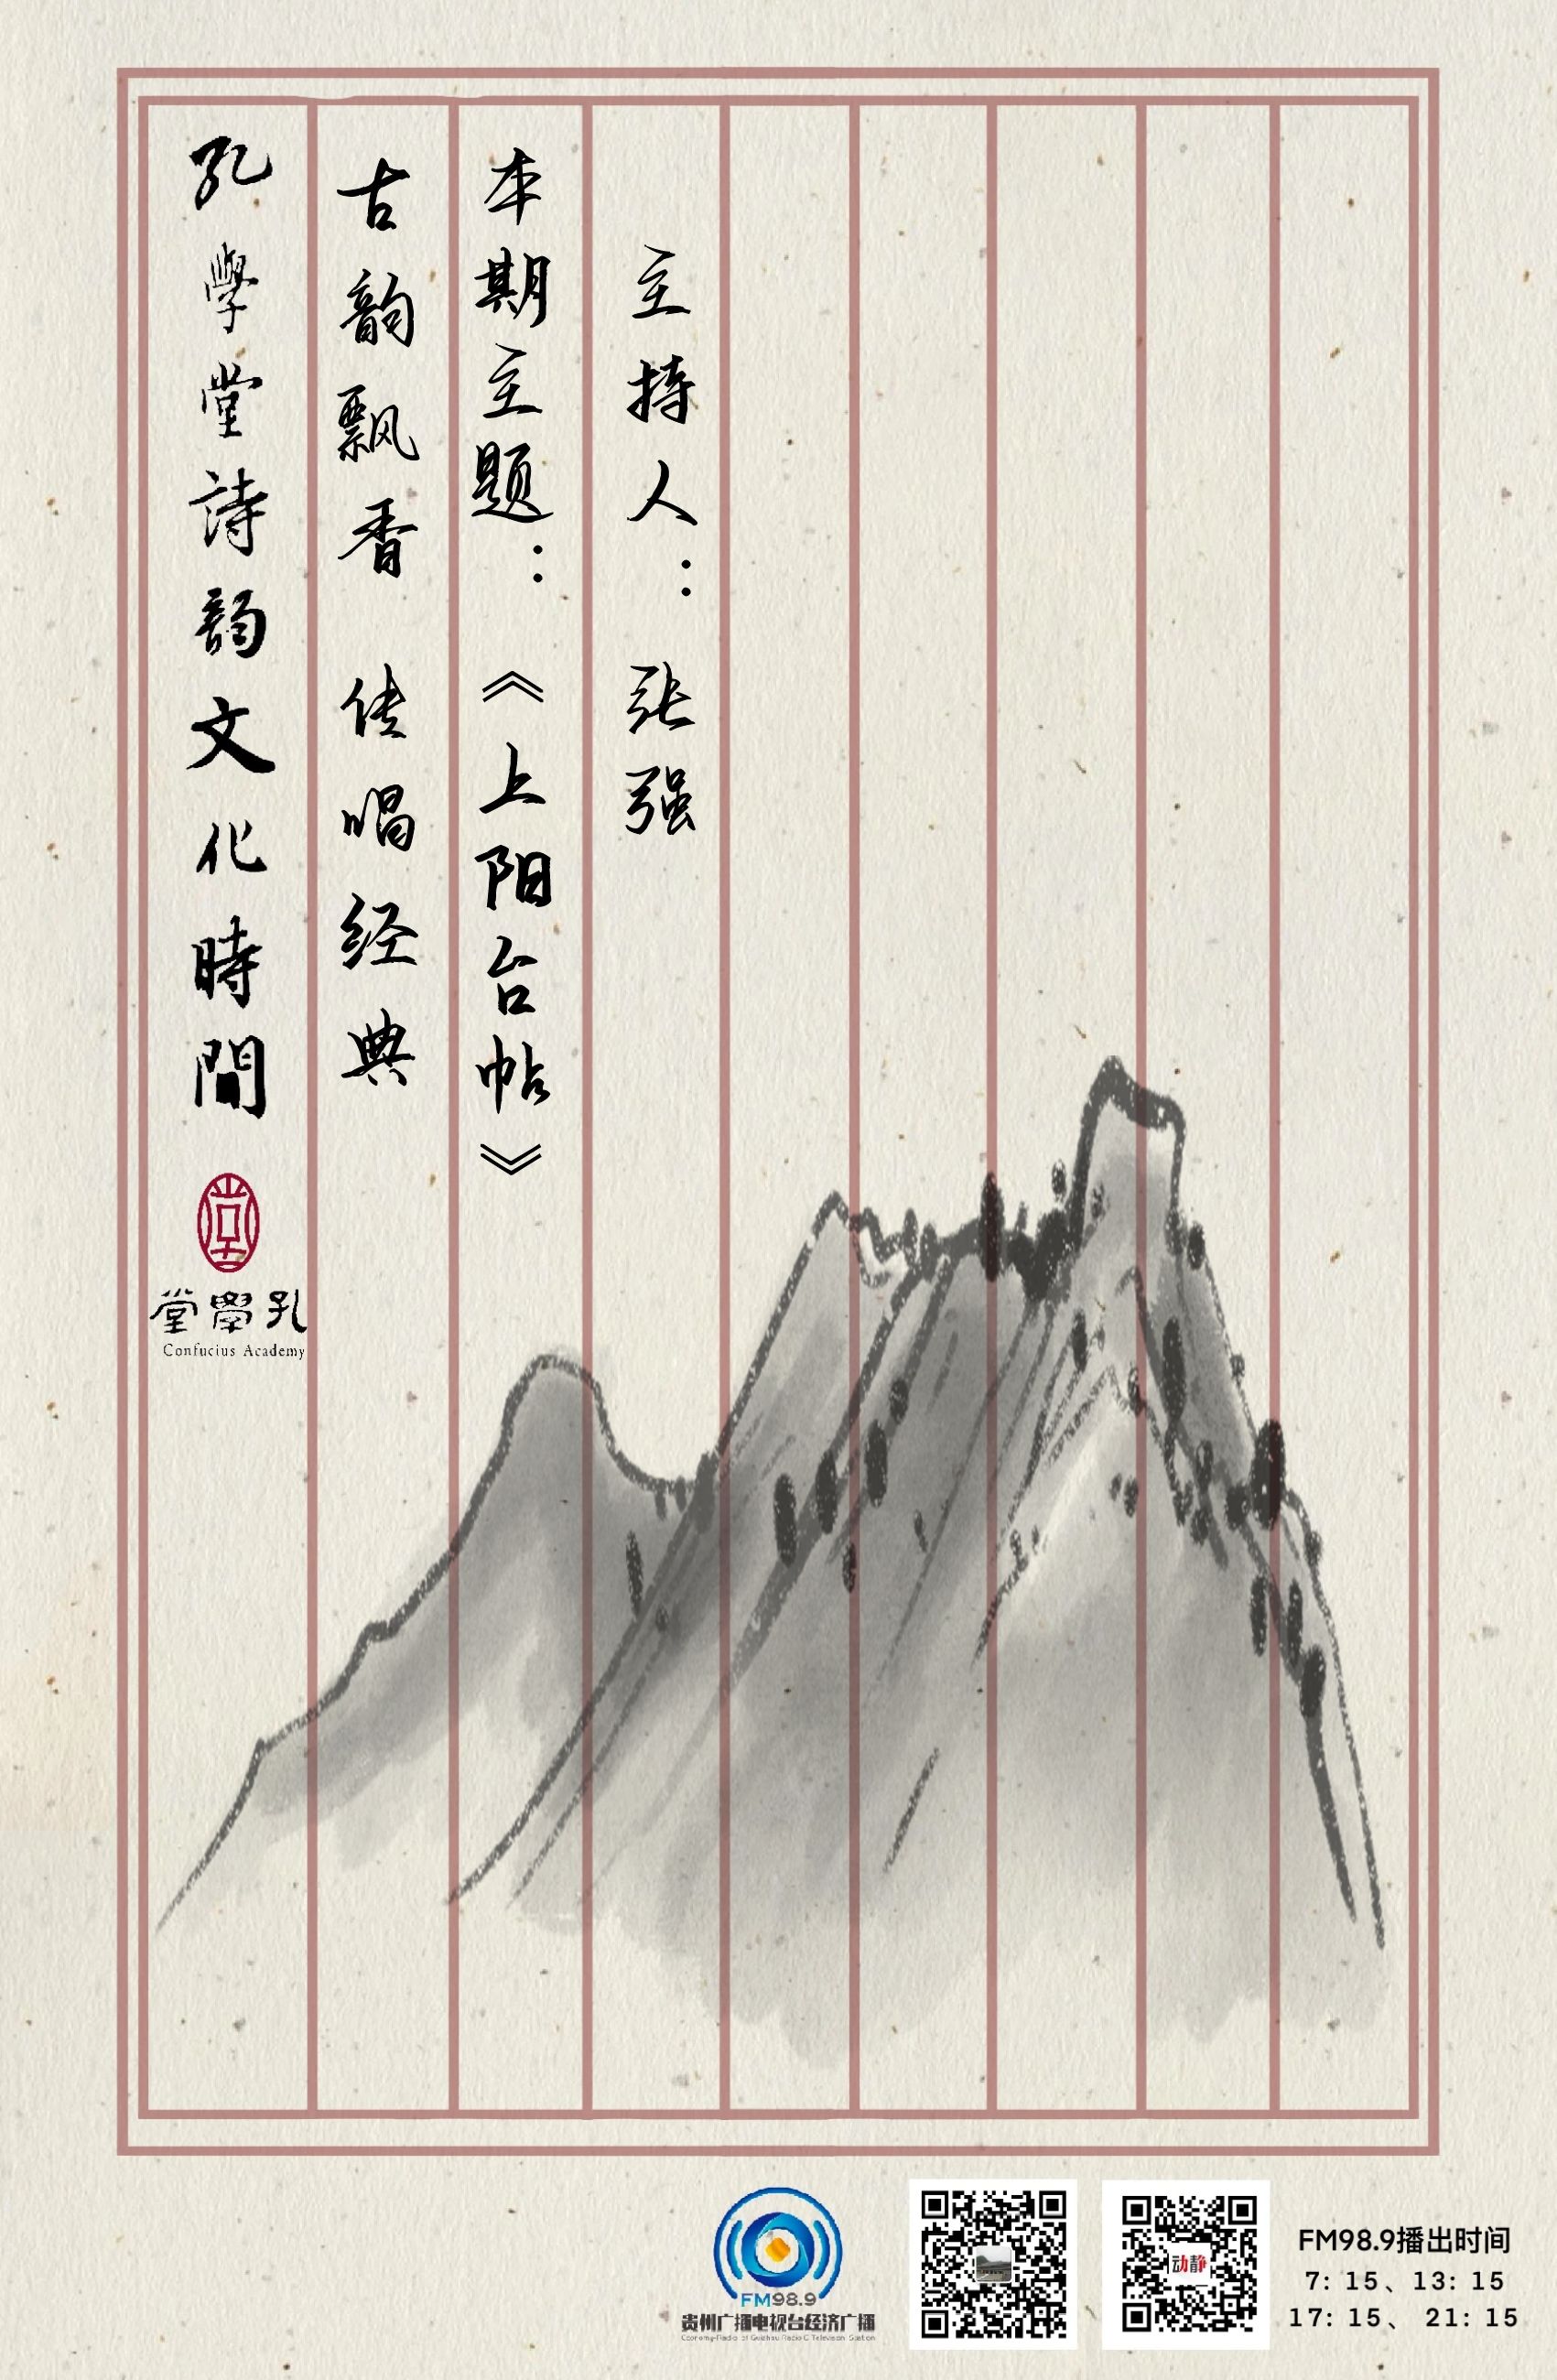 孔學堂詩韵文化時間
古韵飘香 传唱经典
本期主题：《上阳台帖》
主持人：张强
堂學孔
Confucius Academy
FM98.9
贵州广播电视台经济广播
动静
FM98.9播出时间
7: 15、13: 15
17: 15、 21: 15